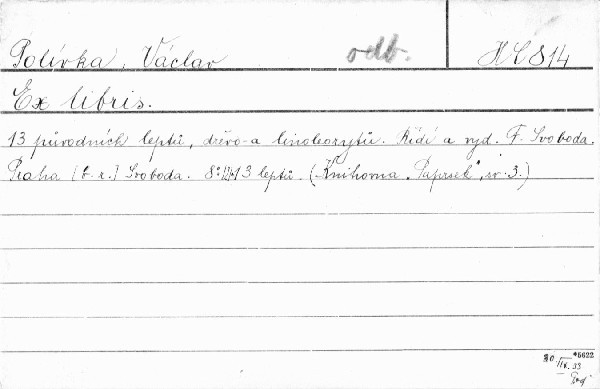 Polívka, Václav odb. HC 814
Ex libris.
13 původních leptů, dřevo- a linoleorytů. Řídí a vyd. F. Svoboda.
Praha [b. r.] Svoboda. 8° 13 leptů. (Knihovna "Paprsek", sv. 3.)
*5622
30./IX. 33